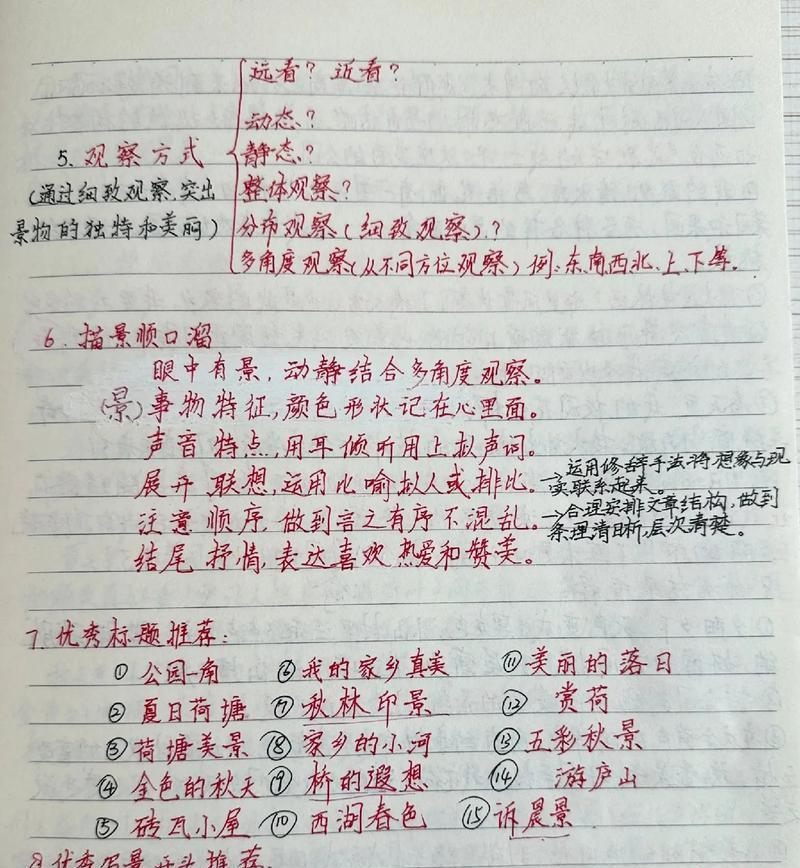 远看？ 近看？
动态？
5. 观察方式
静态？
(通过细致观察,突出
景物的独特和美丽)
整体观察？
分布观察(细致观察)？
多角度观察(从不同方位观察) 例:东.南.西.北.上.下等。
6. 描景顺口溜
眼中有景,动静结合多角度观察。
(景)事物特征,颜色形状记在心里面。
声音特点,用耳倾听用上拟声词。
展开联想,运用比喻拟人或排比。→运用修辞手法将想象与现
实联系起来。
注意顺序,做到言之有序不混乱。→合理安排文章结构,做到
条理清晰,层次清楚。
结尾抒情,表达喜欢热爱和赞美。
7. 优秀标题推荐:
① 公园一角 ⑥ 我的家乡真美 ⑪ 美丽的落日
② 夏日荷塘 ⑦ 秋林印景 ⑫ 赏荷
③ 荷塘美景 ⑧ 家乡的小河 ⑬ 五彩秋景
④ 金色的秋天 ⑨ 桥的遐想 ⑭ 游庐山
⑤ 砖瓦小屋 ⑩ 西湖春色 ⑮ 诉晨景
8. 优秀写景开头推荐.